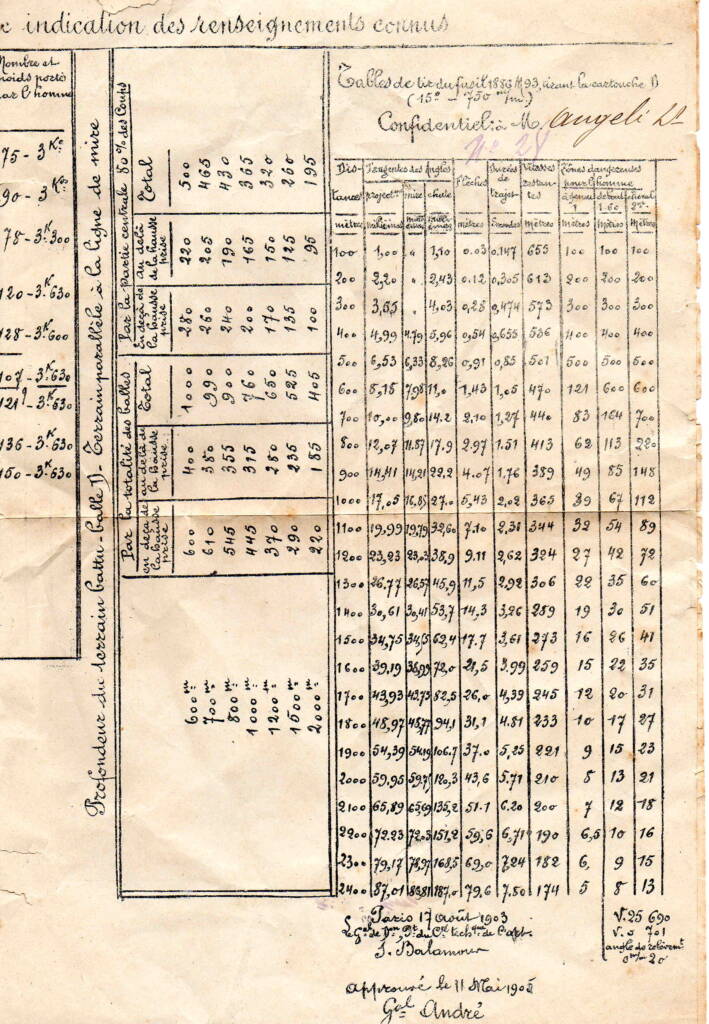 indication des renseignements connus
Nombre et
poids porté
par l'homme
75 - 3 Ko
90 - 3 Ko
78 - 3K300
120 - 3K630
128 - 3K600
107 - 3K630
121 - 3K630
136 - 3K630
150 - 3K630
Profondeur du terrain battu - balle D - Terrain parallèle à la ligne de mire
Par la totalité des balles | Par la partie centrale 80 % des Coups
en deçà de la hausse prise | au delà de la hausse prise | Total | en deçà de la hausse prise | au delà de la hausse prise | Total
600 m | 600 | 400 | 1000 | 280 | 220 | 500
700 m | 610 | 380 | 990 | 260 | 205 | 465
800 m | 545 | 355 | 900 | 240 | 190 | 430
1000 m | 445 | 315 | 760 | 200 | 165 | 365
1200 m | 370 | 280 | 650 | 170 | 150 | 320
1500 m | 290 | 235 | 525 | 135 | 125 | 260
2000 m | 220 | 185 | 405 | 100 | 95 | 195
Tables de tir du fusil 1886 M 93, tirant la cartouche D
Confidentiel : à M. Angeli Lt
No 28
Distances | Tangentes des Angles | Flèches | Durées de trajet | Vitesses restantes | Zônes dangereuses pour l'homme
project | mire | chute | à genou 1 | debout 1.60 | cheval
mètres | mètres | Secondes | mètres | mètres | mètres | mètres
100 | 1,00 | " | 1,10 | 0.03 | 0.147 | 655 | 100 | 100 | 100
200 | 2,20 | " | 2,43 | 0.12 | 0,305 | 613 | 200 | 200 | 200
300 | 3,55 | " | 4,03 | 0,28 | 0,474 | 573 | 300 | 300 | 300
400 | 4,99 | 4.79 | 5,96 | 0,54 | 0,655 | 536 | 400 | 400 | 400
500 | 6,53 | 6,33 | 8,26 | 0,91 | 0,85 | 501 | 500 | 500 | 500
600 | 8,15 | 7,98 | 11,0 | 1,43 | 1,05 | 470 | 121 | 600 | 600
700 | 10,00 | 9,80 | 14.2 | 2.10 | 1,27 | 440 | 83 | 164 | 700
800 | 12,07 | 11.87 | 17.9 | 2.97 | 1.51 | 413 | 62 | 113 | 220
900 | 14,41 | 14,21 | 22,2 | 4.07 | 1,76 | 389 | 49 | 85 | 148
1000 | 17,05 | 16.85 | 27.0 | 5,43 | 2,02 | 365 | 39 | 67 | 112
1100 | 19,99 | 19,79 | 32,60 | 7.10 | 2,31 | 344 | 32 | 54 | 89
1200 | 23,23 | 23,03 | 38,9 | 9.11 | 2,62 | 324 | 27 | 42 | 72
1300 | 26.77 | 26,57 | 45,9 | 11,5 | 2,92 | 306 | 22 | 35 | 60
1400 | 30,61 | 30,41 | 53,7 | 14,3 | 3,26 | 289 | 19 | 30 | 51
1500 | 34,75 | 34,55 | 62,4 | 17.7 | 3,61 | 273 | 16 | 26 | 41
1600 | 39,19 | 38,99 | 72,0 | 21,5 | 3.99 | 259 | 15 | 22 | 35
1700 | 43,93 | 43,73 | 82,5 | 26,0 | 4,39 | 245 | 12 | 20 | 31
1800 | 48,97 | 48,77 | 94,1 | 31,1 | 4.81 | 233 | 10 | 17 | 27
1900 | 54,39 | 54,19 | 106.7 | 37.0 | 5,25 | 221 | 9 | 15 | 23
2000 | 59,95 | 59,75 | 120,3 | 43,6 | 5.71 | 210 | 8 | 13 | 21
2100 | 65,89 | 65,69 | 135,2 | 51.1 | 6.20 | 200 | 7 | 12 | 18
2200 | 72.23 | 72.03 | 151,2 | 59,6 | 6,71 | 190 | 6,5 | 10 | 16
2300 | 79,17 | 78,97 | 168,5 | 69,0 | 7,24 | 182 | 6, | 9 | 15
2400 | 87,01 | 86,81 | 187,0 | 79,6 | 7,80 | 174 | 5 | 8 | 13
Paris 17 août 1903
V. 25 690
V. o 701
angle de relèvemt
20
Approuvé le 11 Mai 190
Gal André